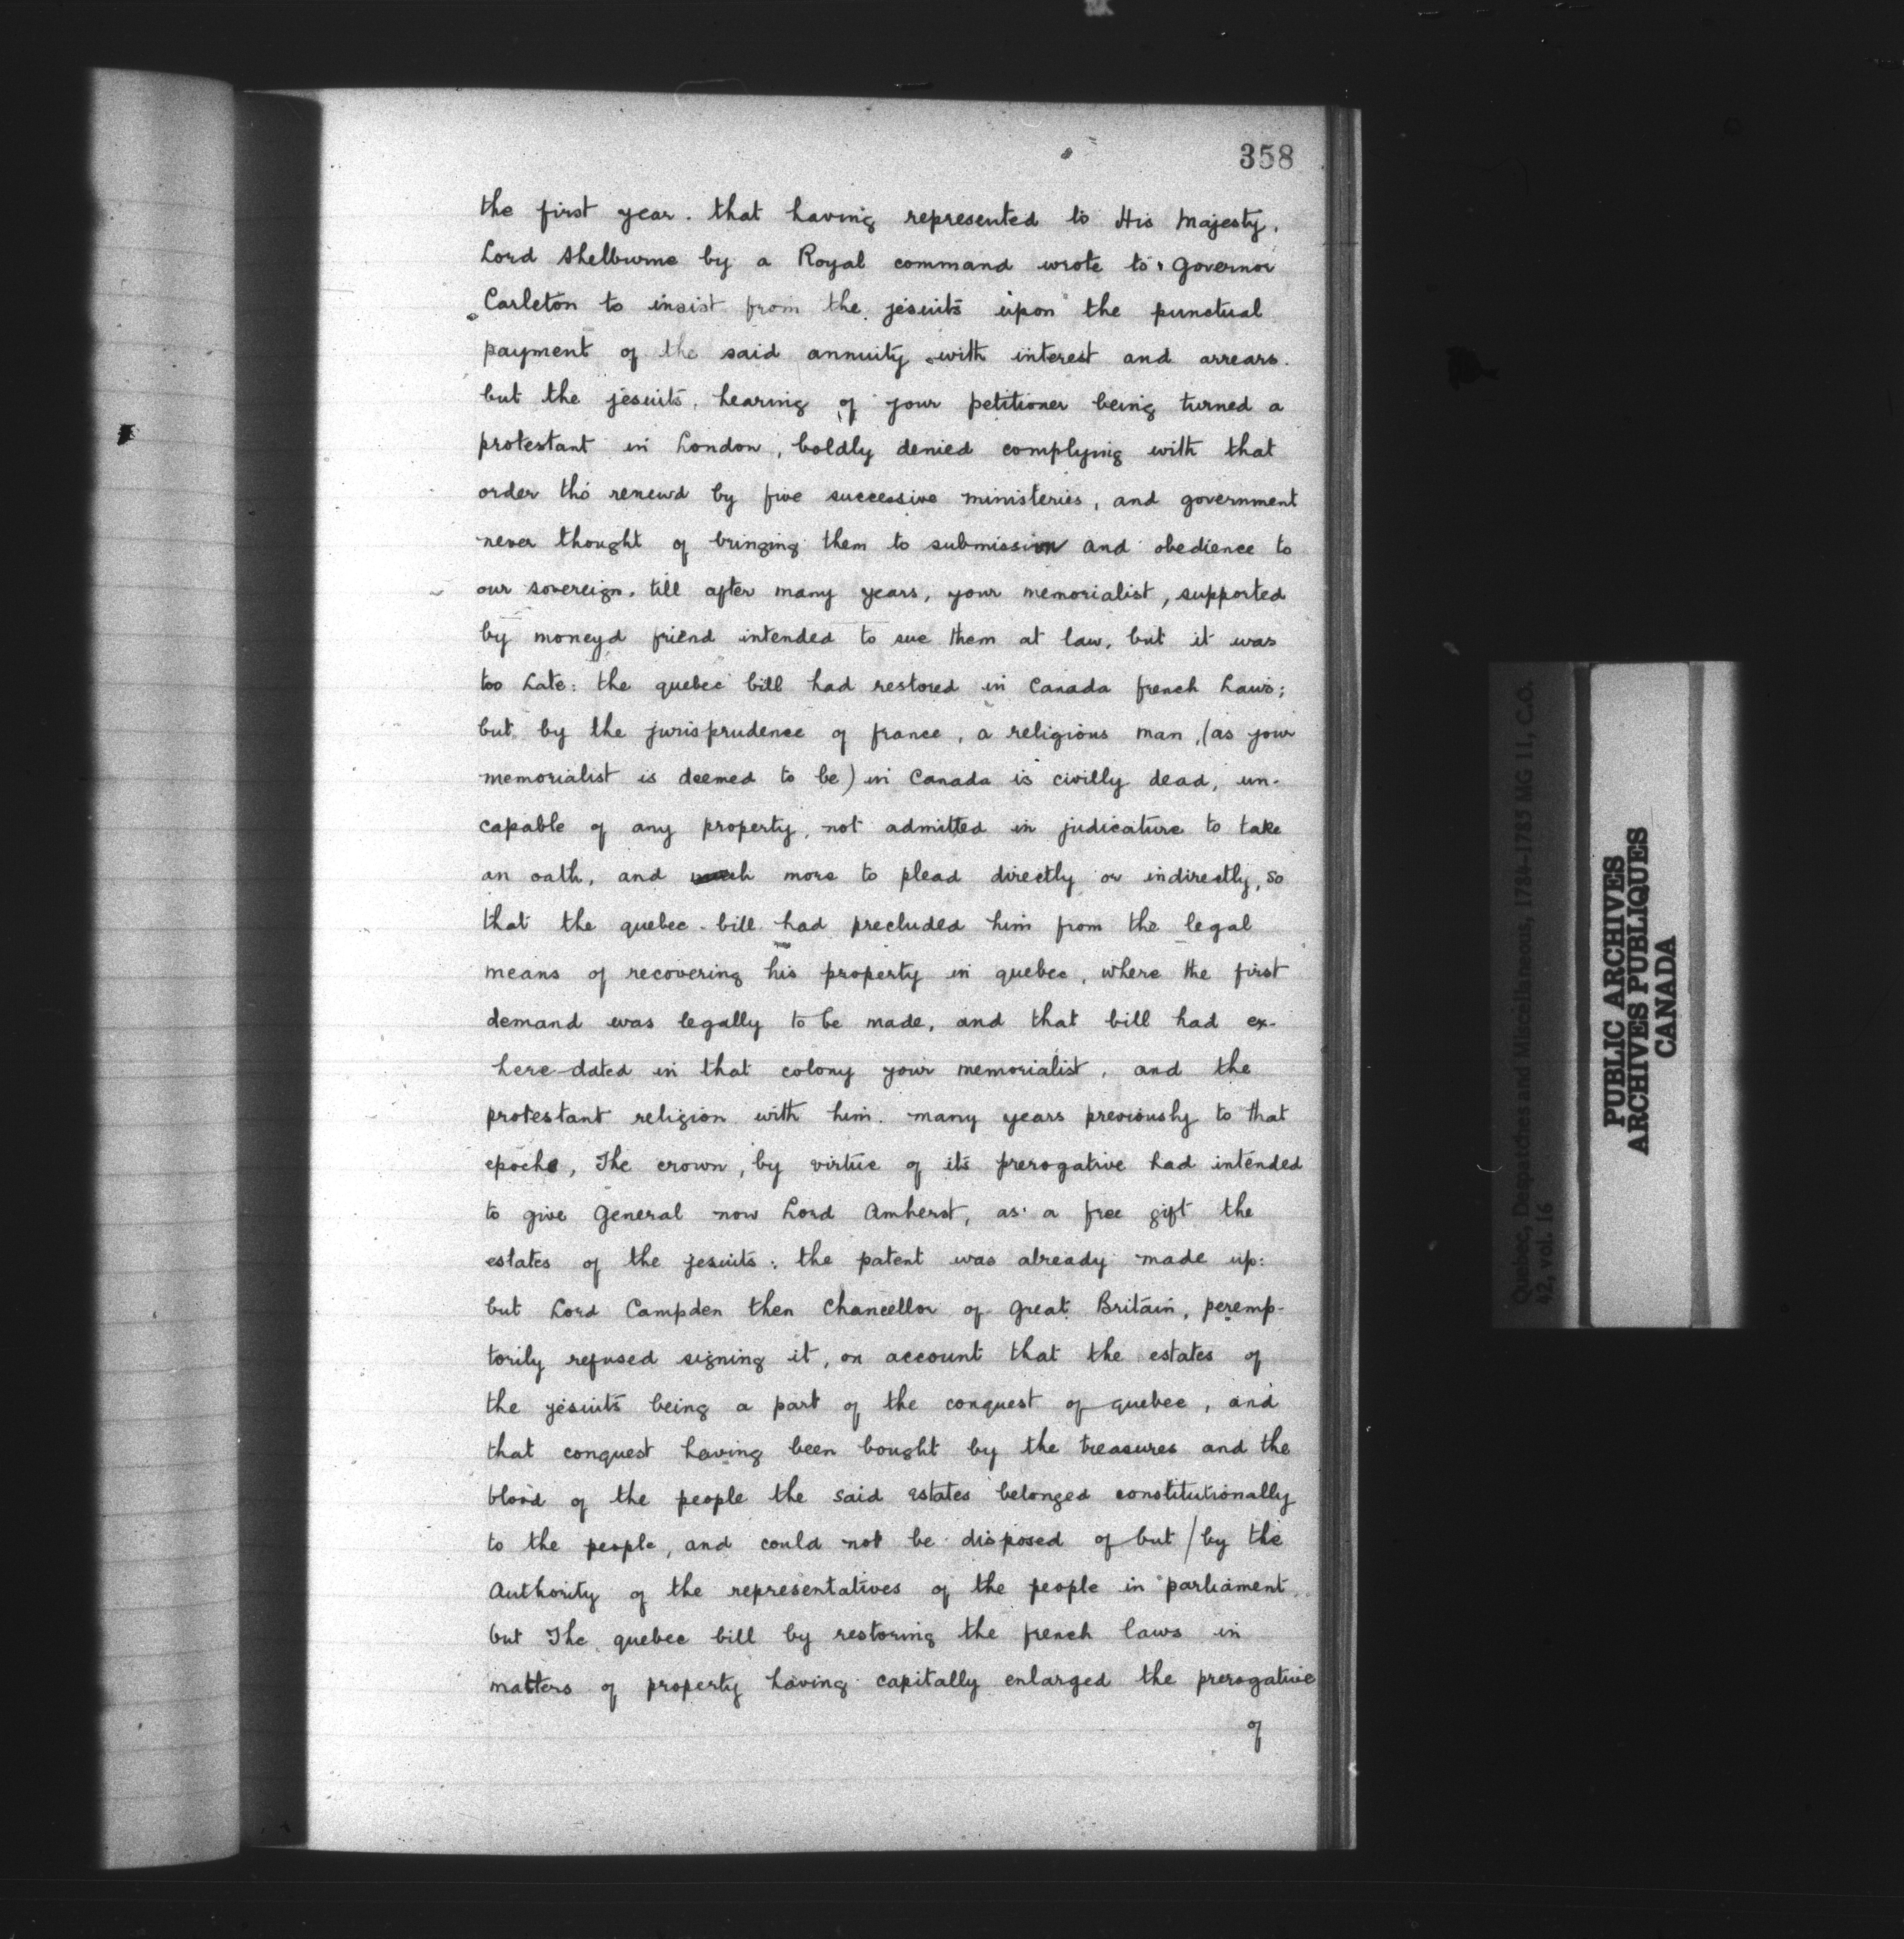 358
the first year. that having represented to His Majesty.
Lord Shelburne by a Royal command wrote to Governor
Carleton to insist from the jesuits upon the punctual
payment of the said annuity with interest and arrears.
but the jesuits, hearing of your petitioner being turned a
protestant in London, boldly denied complying with that
order tho renewd by five successive ministeries, and government
never thought of bringing them to submission and obedience to
our sovereign. till after many years, your memorialist, supported
by moneyd friend intended to sue them at law, but it was
too Late: the quebec bill had restored in Canada french Laws;
but by the jurisprudence of france, a religious man, (as your
memorialist is deemed to be) in Canada is civilly dead, un-
capable of any property, not admitted in judicature to take
an oath, and much more to plead directly or indirectly, so
that the quebec bill had precluded him from the legal
means of recovering his property in quebec, where the first
demand was legally to be made, and that bill had ex-
here-dated in that colony your memorialist, and the
protestant religion with him. many years previously to that
epocha, The crown, by virtue of its prerogative had intended
to give General now Lord Amherst, as a free gift the
estates of the jesuits: the patent was already made up:
but Lord Campden then Chancellor of Great Britain, peremp-
torily refused signing it, on account that the estates of
the jesuits being a part of the conquest of quebec, and
that conquest having been bought by the treasures and the
blood of the people the said estates belonged constitutionally
to the people, and could not be disposed of but / by the
Authority of the representatives of the people in parliament.
but The quebec bill by restoring the french laws in
matters of property having capitally enlarged the prerogative
of
Quebec, Despatches and Miscellaneous, 1784-1785 MG 11, C.O.
42, vol. 16
PUBLIC ARCHIVES
ARCHIVES PUBLIQUES
CANADA